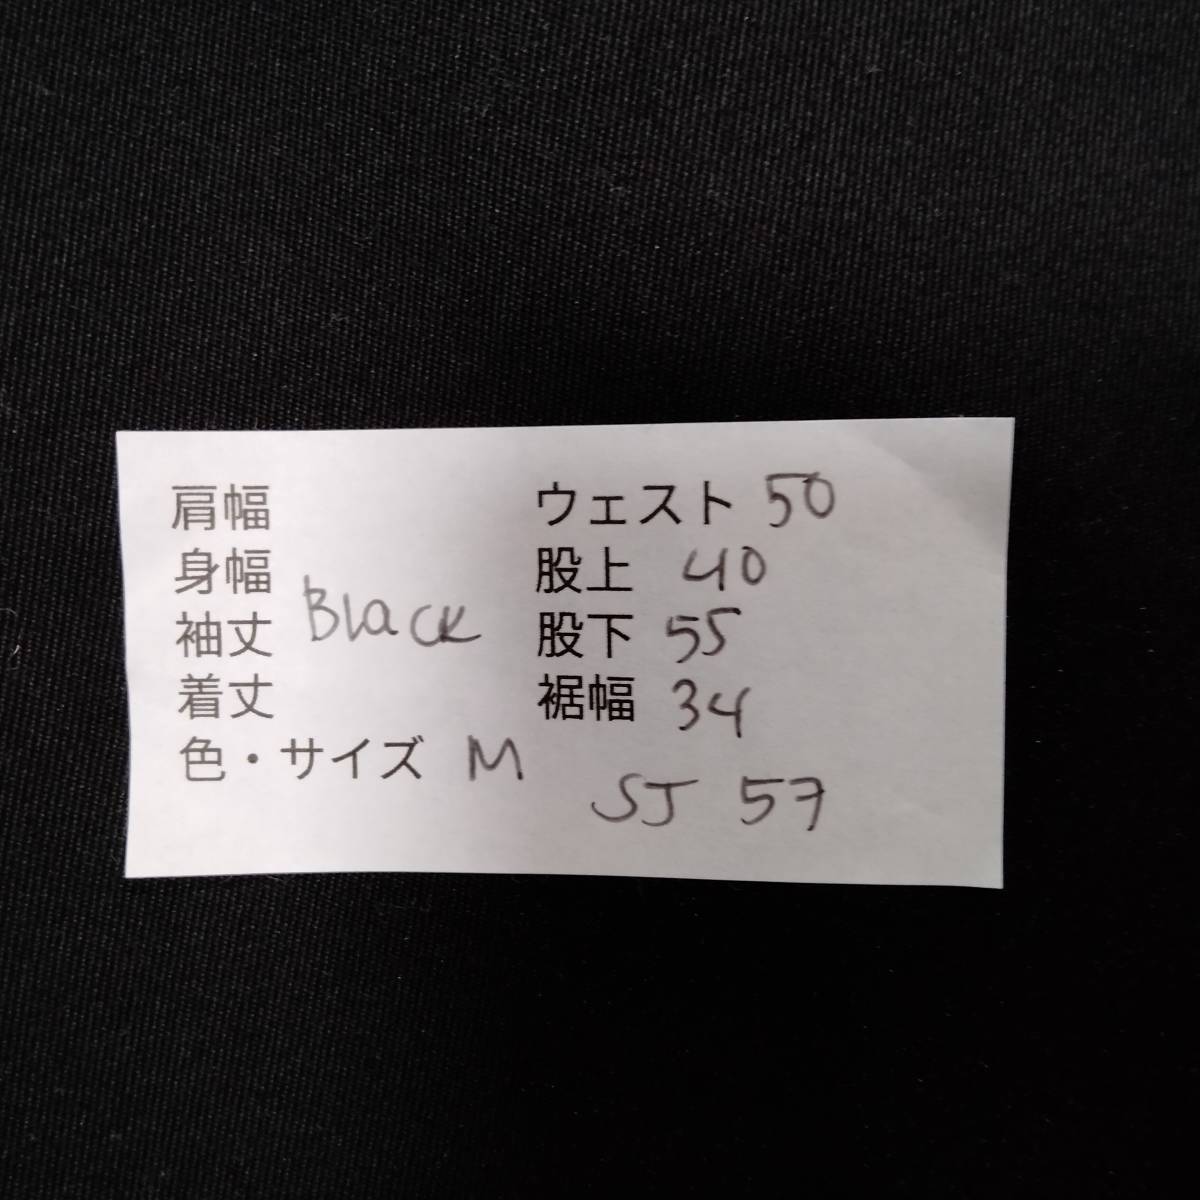 肩幅
身幅
袖丈
着丈
Black
色・サイズ M
ウェスト 50
股上 40
股下 55
裾幅 34
SJ 57